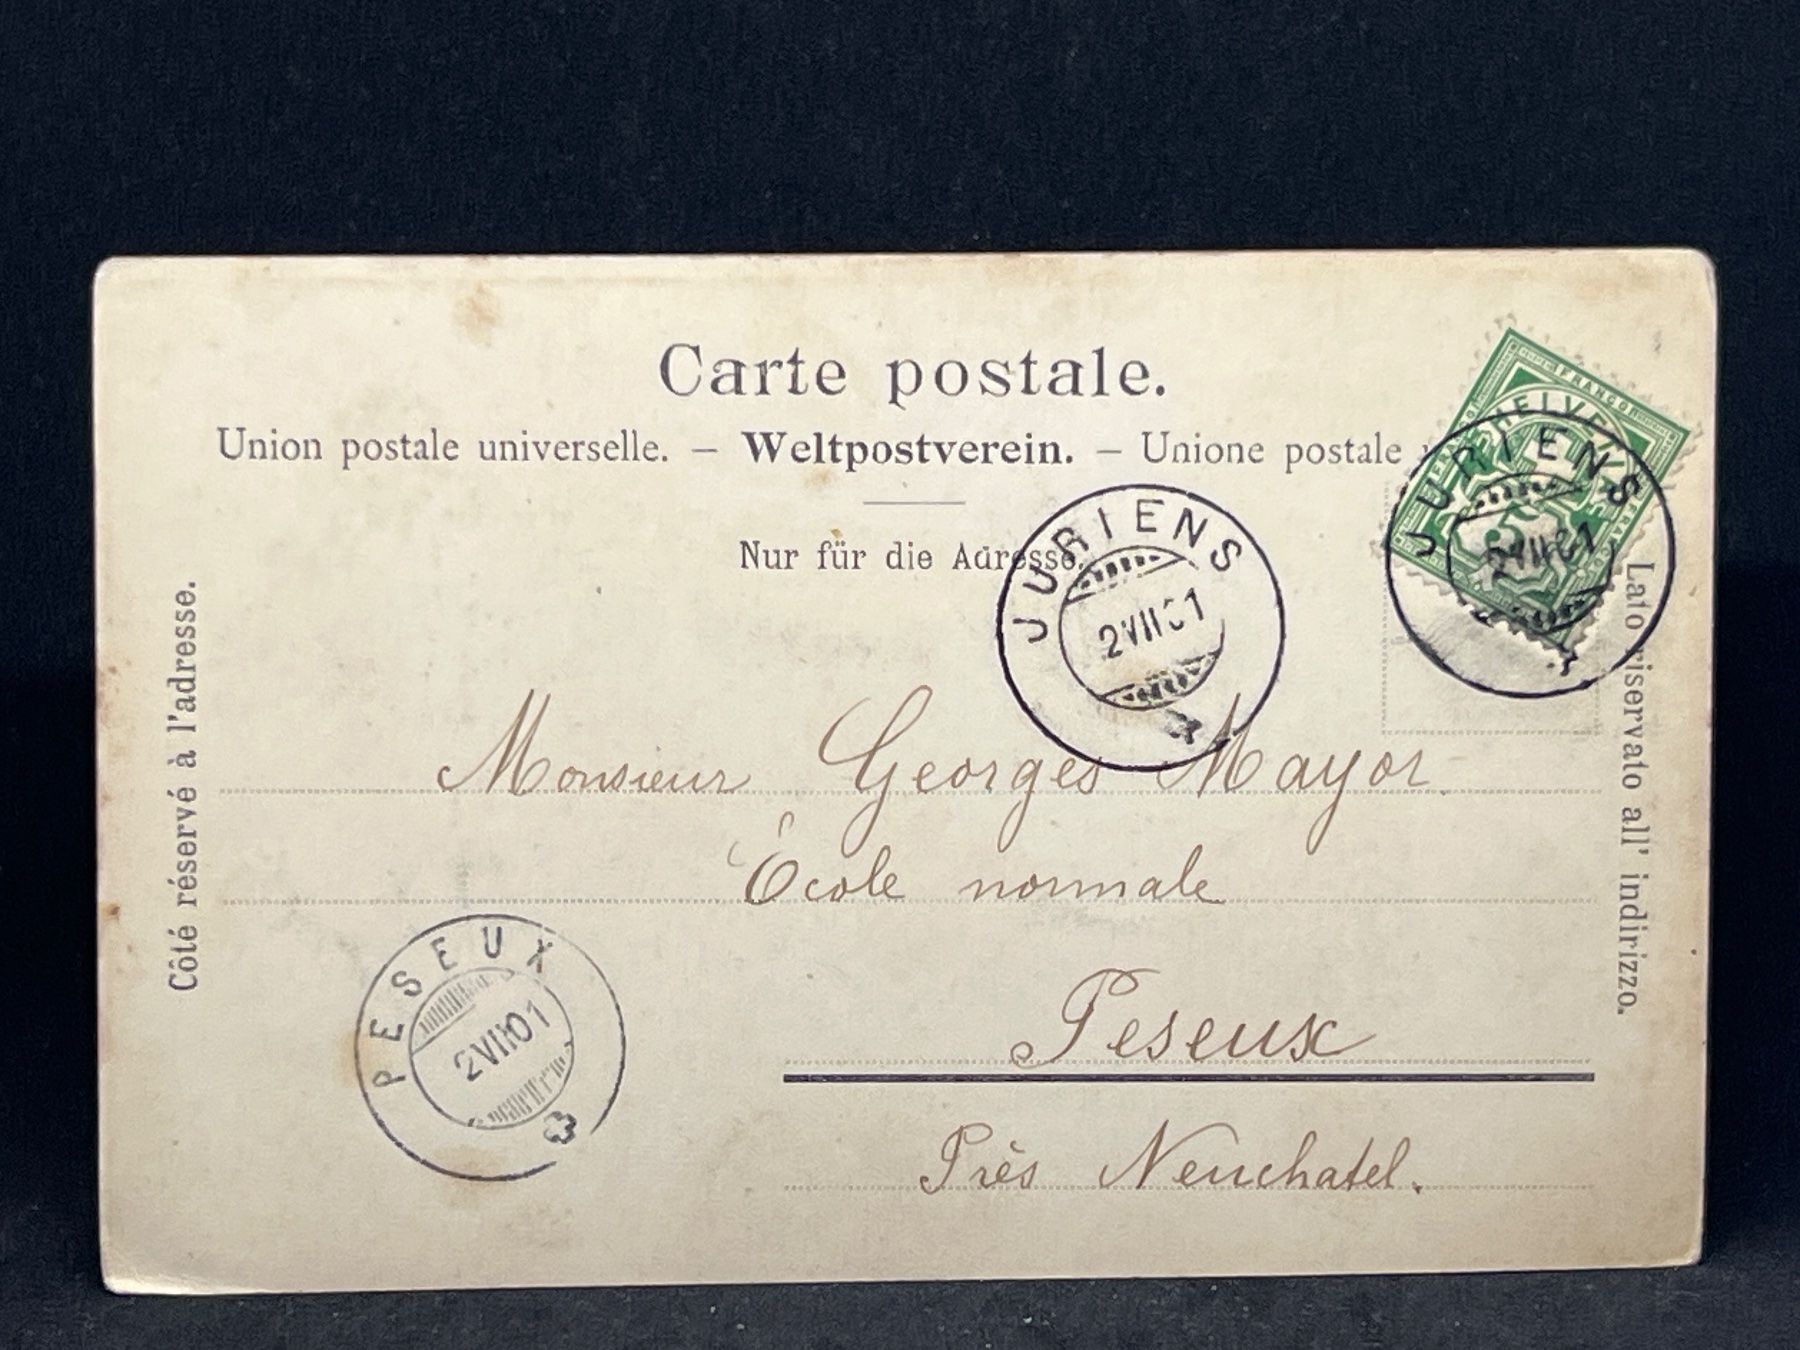 Carte postale.
Union postale universelle. — Weltpostverein. — Unione postale
Nur für die Adresse.
Côté réservé à l'adresse.
Lato riservato all' indirizzo.
FRANCO
HELVETIA
JURIENS
2 VII 01
JURIENS
2 VII 01
Monsieur Georges Mayor.
École normale
Peseux
Près Neuchatel.
PESEUX
2 VII 01